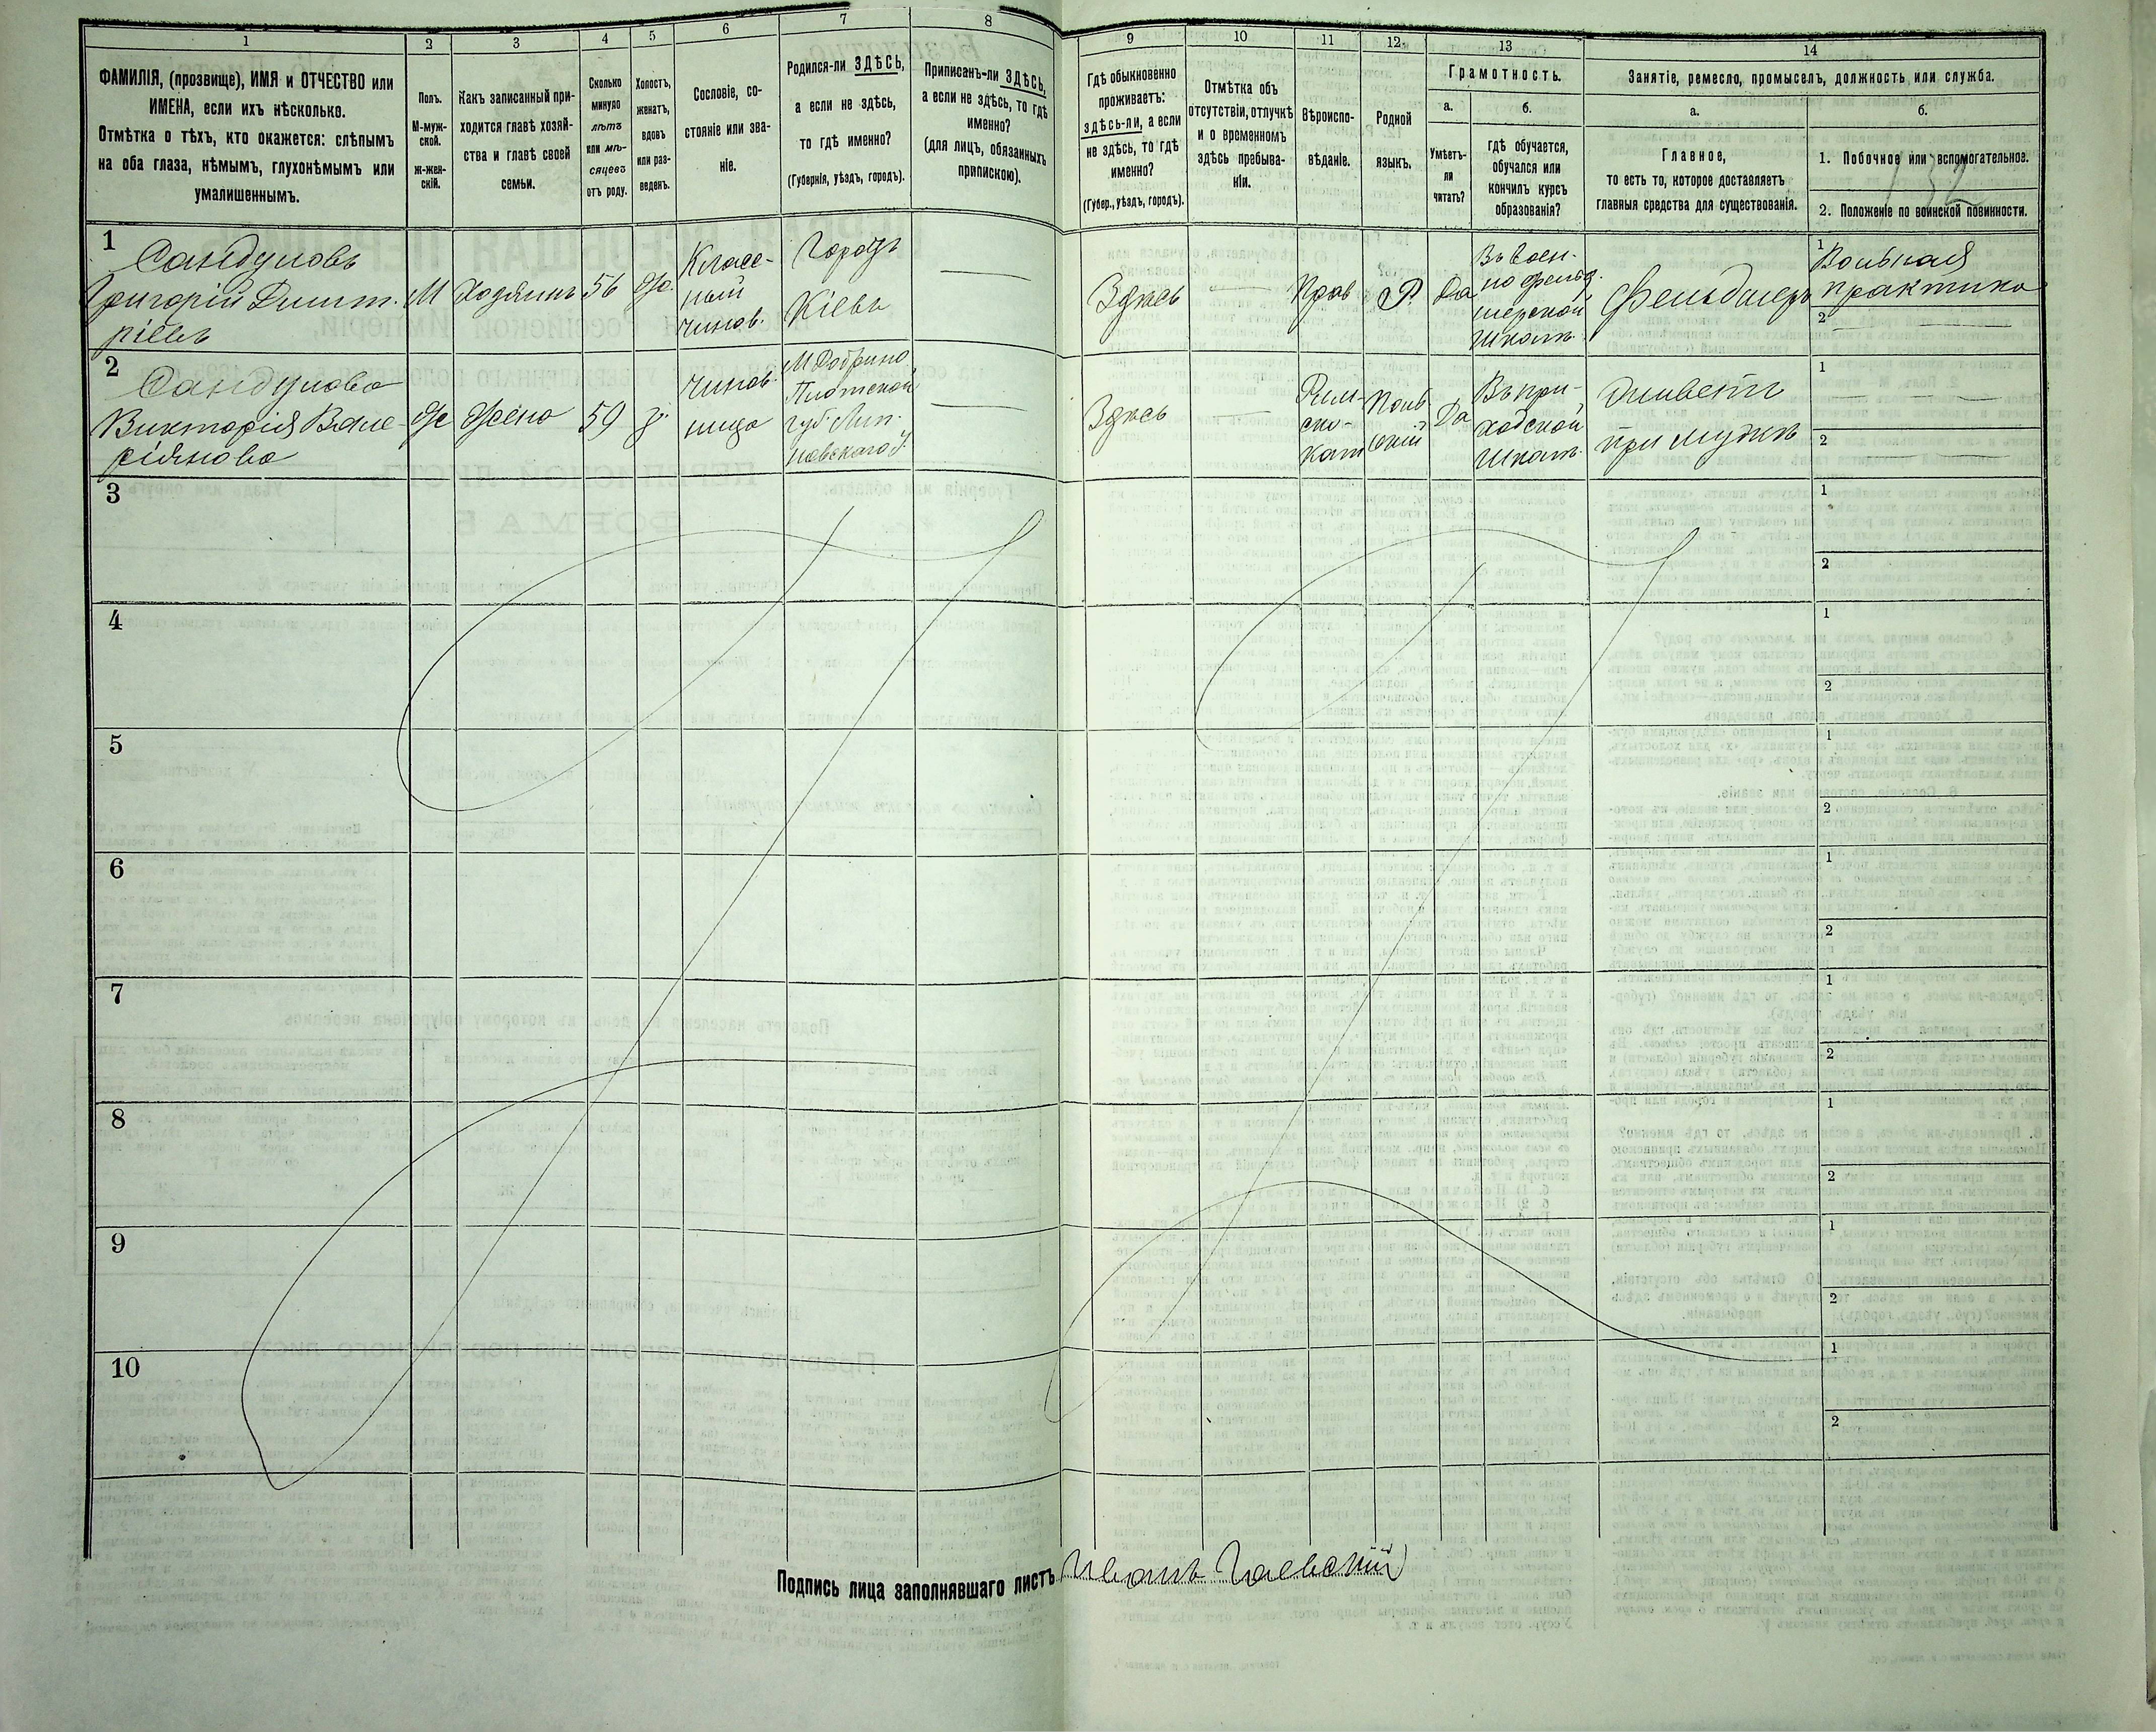 1
2
3
4
5
6
7
8
9
10
11
12
13
14
ФАМИЛІЯ, (прозвище), ИМЯ и ОТЧЕСТВО или
ИМЕНА, если ихъ нѣсколько.
Отмѣтка о тѣхъ, кто окажется: слѣпымъ
на оба глаза, нѣмымъ, глухонѣмымъ или
умалишеннымъ.
Полъ.
М-муж-
ской.
Ж-жен-
скій.
Какъ записанный при-
ходится главѣ хозяй-
ства и главѣ своей
семьи.
Сколько
минуло
лѣтъ
или мѣ-
сяцевъ
отъ роду.
Холостъ,
женатъ,
вдовъ
или раз-
веденъ.
Сословіе, со-
стояніе или зва-
ніе.
Родился-ли ЗДѢСЬ,
а если не здѣсь,
то гдѣ именно?
(Губернія, уѣздъ, городъ).
Приписанъ-ли ЗДѢСЬ,
а если не здѣсь, то гдѣ
именно?
(для лицъ, обязанныхъ
припискою).
Гдѣ обыкновенно
проживаетъ:
здѣсь-ли, а если
не здѣсь, то гдѣ
именно?
(Губер., уѣздъ, городъ).
Отмѣтка объ
отсутствіи, отлучкѣ
и о временномъ
здѣсь пребыва-
ніи.
Вѣроиспо-
вѣданіе.
Родной
языкъ.
Грамотность.
а.
Умѣетъ-
ли
читать?
б.
Гдѣ обучается,
обучался или
кончилъ курсъ
образованія?
Занятіе, ремесло, промыселъ, должность или служба.
а.
Главное,
то есть то, которое доставляетъ
главныя средства для существованія.
б.
1. Побочное или вспомогательное.
132
2. Положеніе по воинской повинности.
1
Сандуловъ
Григорій Дмит.
ріевъ
М
Хозяинъ
56
Ж.
Класс-
ный
чинов.
Городъ
Кіевъ
Здѣсь
Прав
Р.
Да
Въ воен-
но фельд.
шерской
школѣ.
Фельдшеръ
1
Вольная
практика
2
2
Сандулова
Виктория Вале-
ріянова
Ж
Жена
59
З.
чинов.
ница
М Добрино
Плотской
губ. Лип.
новскаго у.
Здѣсь
Рим-
ско-
Кат
Поль
скій
Да
Въ при-
ходской
школѣ.
Живетъ
при мужѣ
1
2
3
1
2
4
1
2
5
1
2
6
1
2
7
1
2
8
1
2
9
1
2
10
1
2
Подпись лица заполнявшаго листъ Иванъ Гаевскій